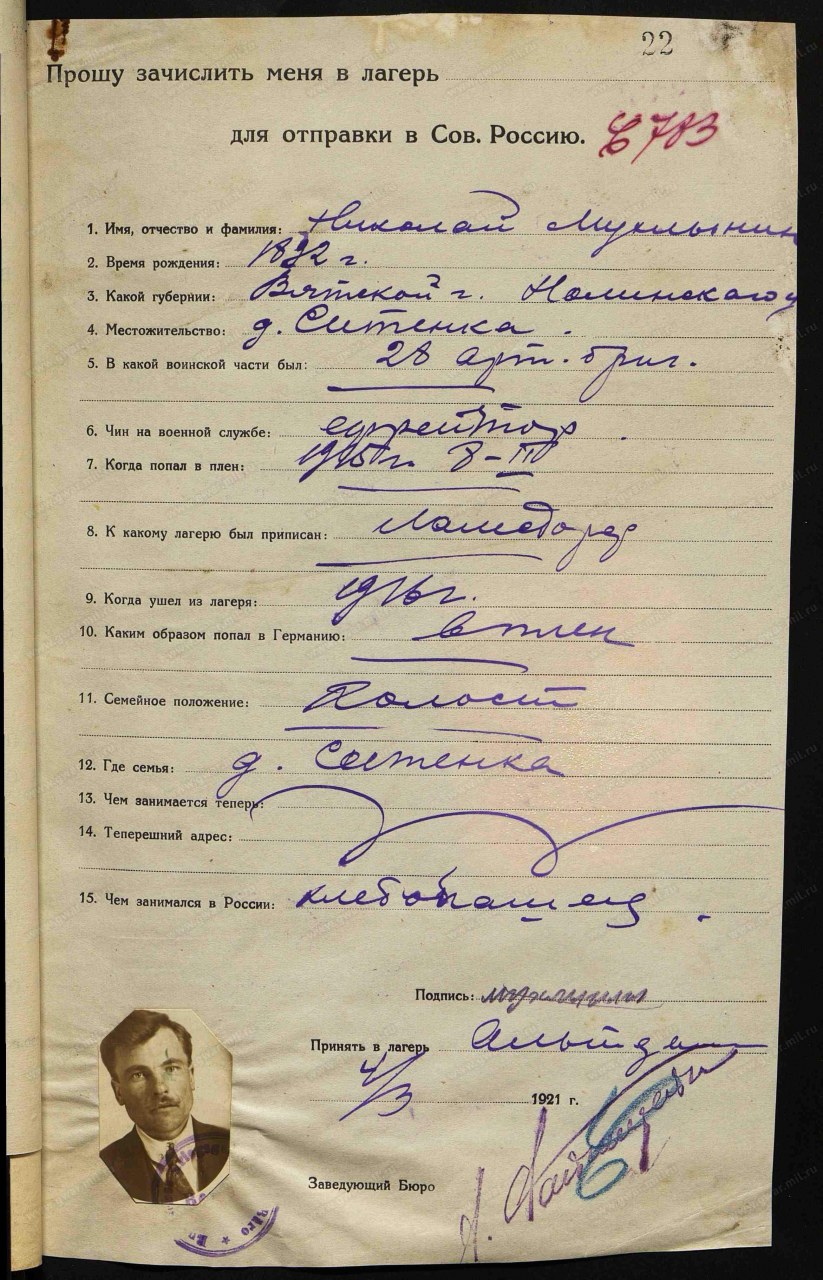 22
Прошу зачислить меня в лагерь
для отправки в Сов. Россию.
783
1. Имя, отчество и фамилия: Николай Мухлынин
2. Время рождения: 1892 г.
3. Какой губернии: Вятской г. Нолинского у
4. Местожительство: д. Ситенка.
5. В какой воинской части был: 28 арт. бриг.
6. Чин на военной службе: ефрейтор.
7. Когда попал в плен: 1915 г. 8-III
8. К какому лагерю был приписан: Ламсдорф
9. Когда ушел из лагеря: 1916 г.
10. Каким образом попал в Германию: в плен
11. Семейное положение: Холост
12. Где семья: д. Ситенка
13. Чем занимается теперь:
14. Теперешний адрес:
15. Чем занимался в России: хлебопашец.
Подпись:
Принять в лагерь Альтдам
4/3 1921 г.
Заведующий Бюро